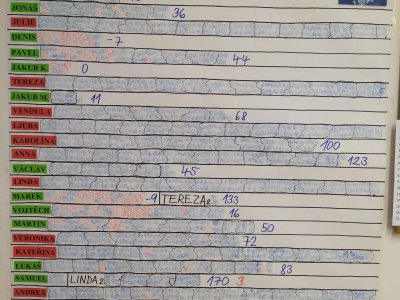 JONÁŠ 36
JULIE
DENIS -7
PAVEL 44
JAKUB K. 0
TEREZA
JAKUB M. 11
VENDULA 68
LJUBA
KAROLÍNA 100
ANNA 123
VÁCLAV 45
LINDA
MAREK -9 TEREZA 2 133
VOJTĚCH 16
MARTIN 50
VERONIKA 72
KATEŘINA
LUKÁŠ 83
SAMUEL LINDA 2. 170 3
ANDREA